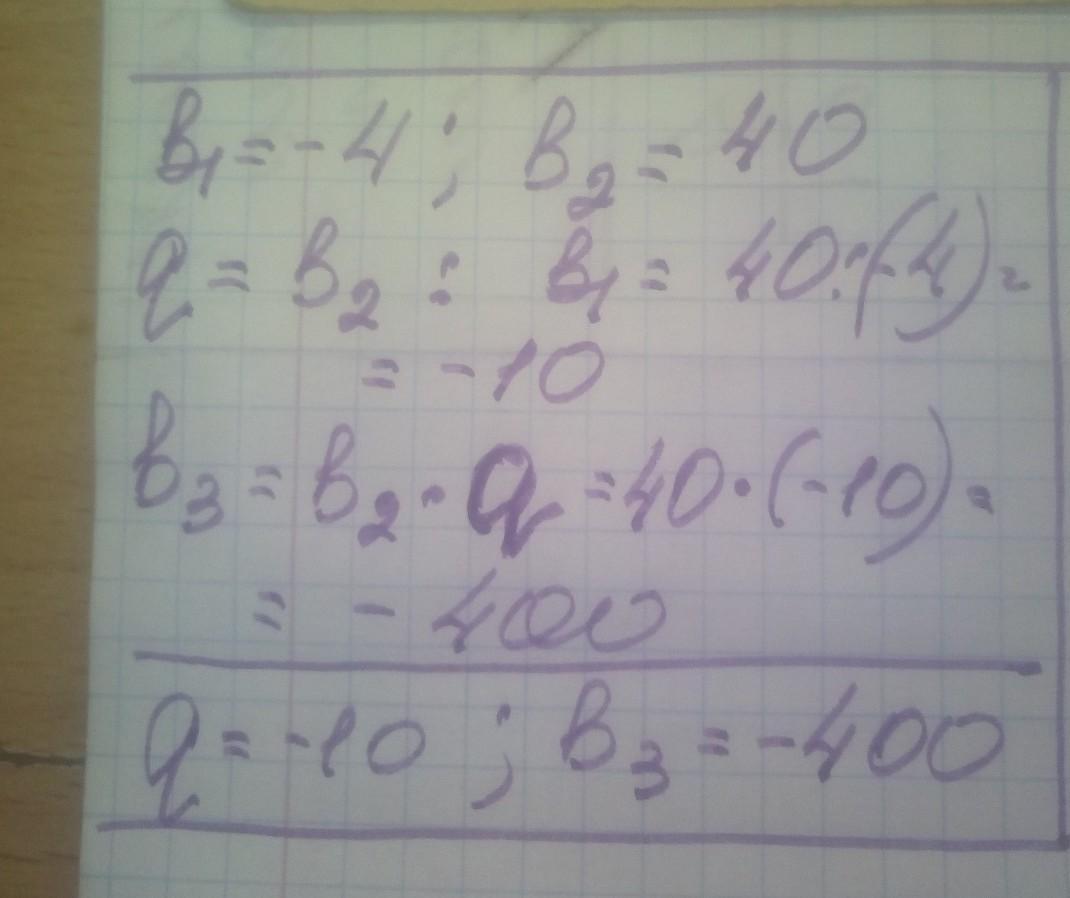 b₁ = -4 ; b₂ = 40
q = b₂ : b₁ = 40:(-4) =
= -10
b₃ = b₂ · q = 40 · (-10) =
= - 400
q = -10 ; b₃ = -400